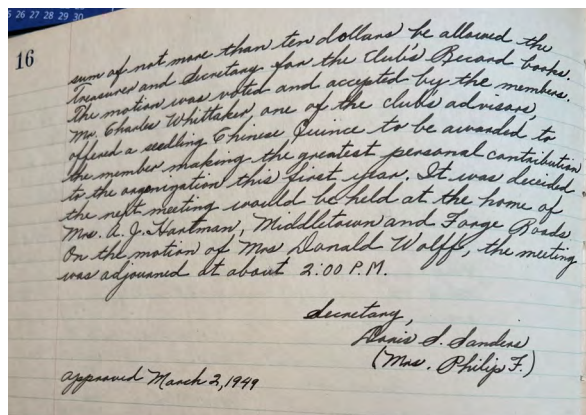 5 26 27 28 29 30
16
sum of not more than ten dollars be allowed the
Treasurer and Secretary for the Club's Record books.
The motion was voted and accepted by the members.
Mr. Charles Whittaker, one of the club's advisors,
offered a seedling Chinese Quince to be awarded to
the member making the greatest personal contribution
to the organization this first year. It was decided
the next meeting would be held at the home of
Mrs. A. J. Hartman, Middletown and Forge Roads.
On the motion of Mrs Donald Wolff, the meeting
was adjourned at about 2:00 P.M.
Secretary,
Doris S. Sanders
(Mrs. Philip F.)
approved March 2, 1949